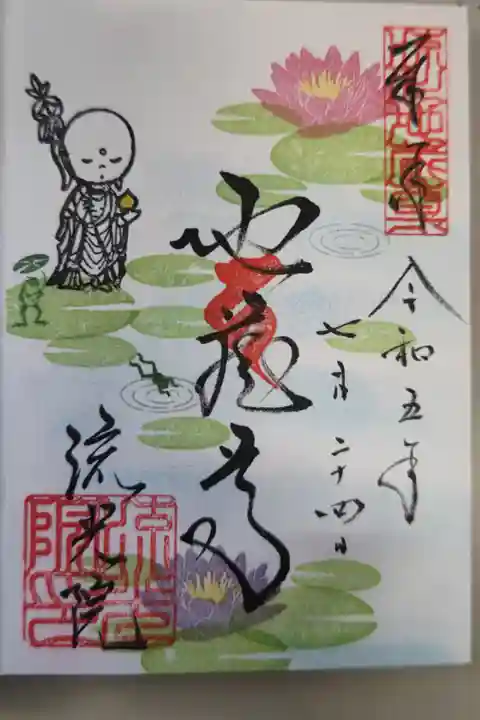 奉拝
令和五年
七月二十四日
地蔵尊
流光院